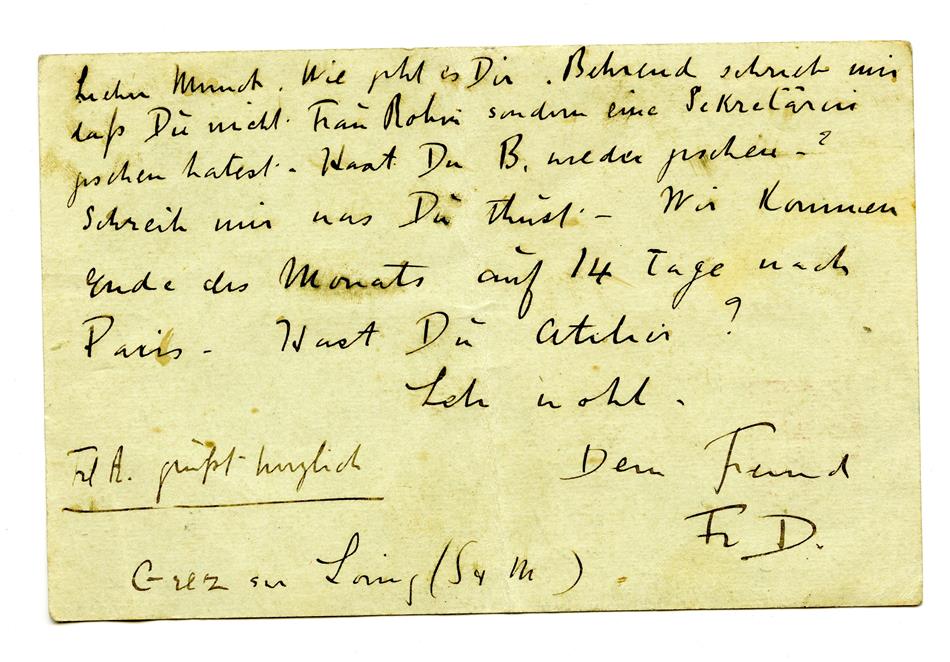 Lieber Munch. Wie geht es Dir. Behrend schrieb mir
daß Du nicht Frau Rohm sondern eine Sekretärin
gesehen hatest. Hast Du B. wieder gesehen - ?
Schreib mir was Du thust - Wir Kommen
Ende des Monats auf 14 Tage nach
Paris - Hast Du Atelier ?
Leb wohl.
Frl A. grüßt herzlich
Dein Freund
Fr D.
Grez sur Loing (S & M)